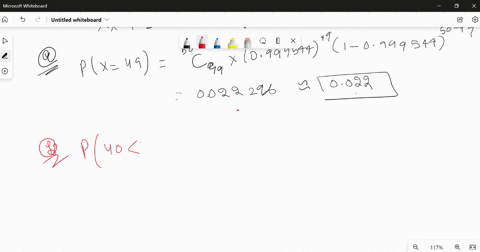 Microsoft Whiteboard
Untitled whiteboard
P(X=49) = ⁵⁰C₄₉ × (0.999544)⁴⁹ (1-0.999544)⁵⁰⁻⁴⁹
= 0.022296 ≈ 0.022
P(40<
117%